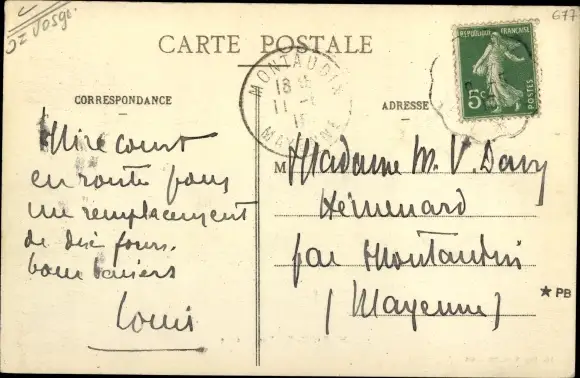 52 Vosges
677
CARTE POSTALE
RÉPUBLIQUE FRANÇAISE
5c
POSTES
MONTAUDIN
18
11
MAYENNE
CORRESPONDANCE
ADRESSE
Mirecourt
en route pour
un remplacement
de dix jours.
bons baisers
Louis
M
Madame M. V. Davy
Hémenard
par Montaudin
(Mayenne)
★ PB